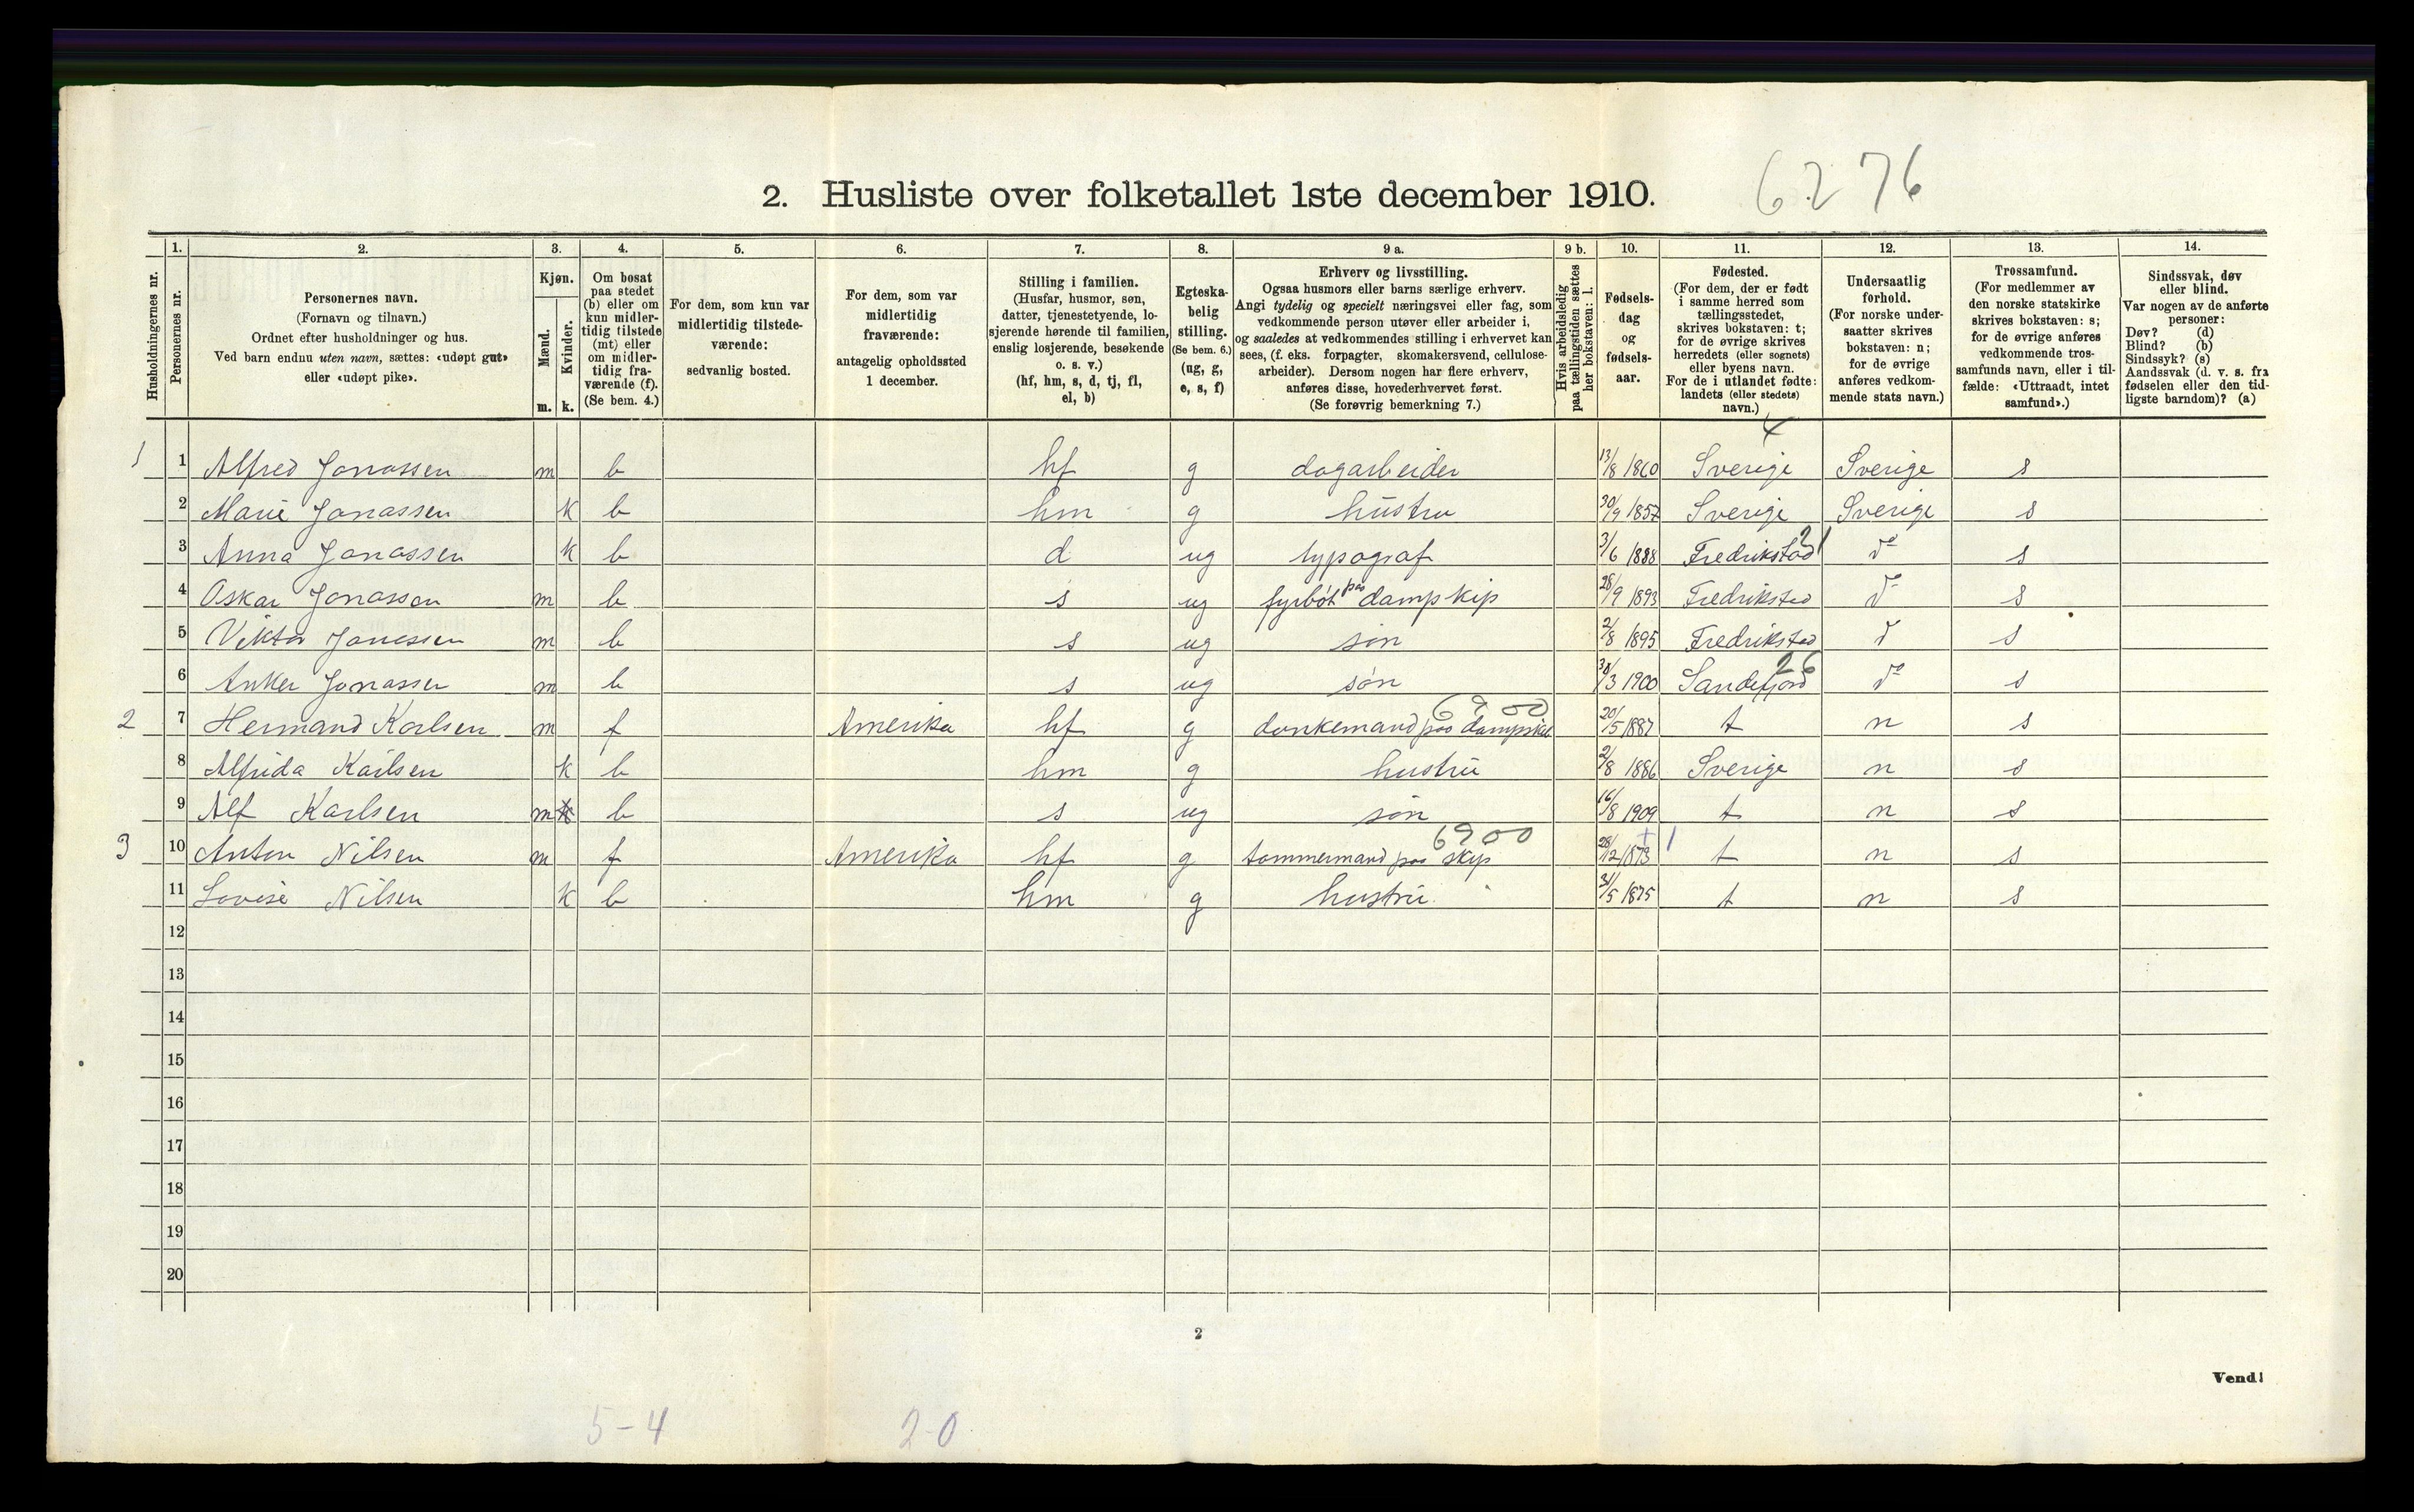 2. Husliste over folketallet 1ste december 1910.
6276
1. 2. 3. 4. 5. 6. 7. 8. 9 a. 9 b. 10. 11. 12. 13. 14.
Husholdningernes nr.
Personernes nr.
Personernes navn.
(Fornavn og tilnavn.)
Ordnet efter husholdninger og hus.
Ved barn endnu uten navn, sættes: «udøpt gut»
eller «udøpt pike».
Kjøn.
Mænd.
Kvinder.
m. k.
Om bosat
paa stedet
(b) eller om
kun midler-
tidig tilstede
(mt) eller
om midler-
tidig fra-
værende (f).
(Se bem. 4.)
For dem, som kun var
midlertidig tilstede-
værende:
sedvanlig bosted.
For dem, som var
midlertidig
fraværende:
antagelig opholdssted
1 december.
Stilling i familien.
(Husfar, husmor, søn,
datter, tjenestetyende, lo-
sjerende hørende til familien,
enslig losjerende, besøkende
o. s. v.)
(hf, hm, s, d, tj, fl,
el, b)
Egteska-
belig
stilling.
(Se bem. 6.)
(ug, g,
e, s, f)
Erhverv og livsstilling.
Ogsaa husmors eller barns særlige erhverv.
Angi tydelig og specielt næringsvei eller fag, som
vedkommende person utøver eller arbeider i,
og saaledes at vedkommendes stilling i erhvervet kan
sees, (f. eks. forpagter, skomakersvend, cellulose-
arbeider). Dersom nogen har flere erhverv,
anføres disse, hovederhvervet først.
(Se forøvrig bemerkning 7.)
Hvis arbeidsledig
paa tællingstiden sættes
her bokstaven: l.
Fødsels-
dag
og
fødsels-
aar.
Fødested.
(For dem, der er født
i samme herred som
tællingsstedet,
skrives bokstaven: t;
for de øvrige skrives
herredets (eller sognets)
eller byens navn.
For de i utlandet fødte:
landets (eller stedets)
navn.)
Undersaatlig
forhold.
(For norske under-
saatter skrives
bokstaven: n;
for de øvrige
anføres vedkom-
mende stats navn.)
Trossamfund.
(For medlemmer av
den norske statskirke
skrives bokstaven: s;
for de øvrige anføres
vedkommende tros-
samfunds navn, eller i til-
fælde: «Uttraadt, intet
samfund».)
Sindssvak, døv
eller blind.
Var nogen av de anførte
personer:
Døv? (d)
Blind? (b)
Sindssyk? (s)
Aandssvak (d. v. s. fra
fødselen eller den tid-
ligste barndom)? (a)
1 1 Alfred Jonassen m b hf g dagarbeider 13/8 1860 Sverige Sverige s
2 Marie Jonassen k b hm g hustru 30/9 1857 Sverige Sverige s
3 Anna Jonassen k b d ug typograf 3/6 1888 Fredrikstad 21 do s
4 Oskar Jonassen m b s ug fyrbøt paa dampskip 28/9 1893 Fredrikstad do s
5 Viktor Jonassen m b s ug søn 2/8 1895 Fredrikstad do s
6 Anker Jonassen m b s ug søn 30/3 1900 Sandefjord 26 do s
2 7 Hermand Karlsen m f Amerika hf g donkemand paa dampskib 6900 20/5 1887 t n s
8 Alfrida Karlsen k b hm g hustru 2/8 1886 Sverige n s
9 Alf Karlsen m b s ug søn 16/8 1909 t n s
3 10 Anton Nilsen m f Amerika hf g tømmermand paa skip 6900 28/12 1873 t n s
11 Lovise Nilsen k b hm g hustru 31/5 1875 t n s
12
13
14
15
16
17
18
19
20
2
Vend!
5-4 2-0